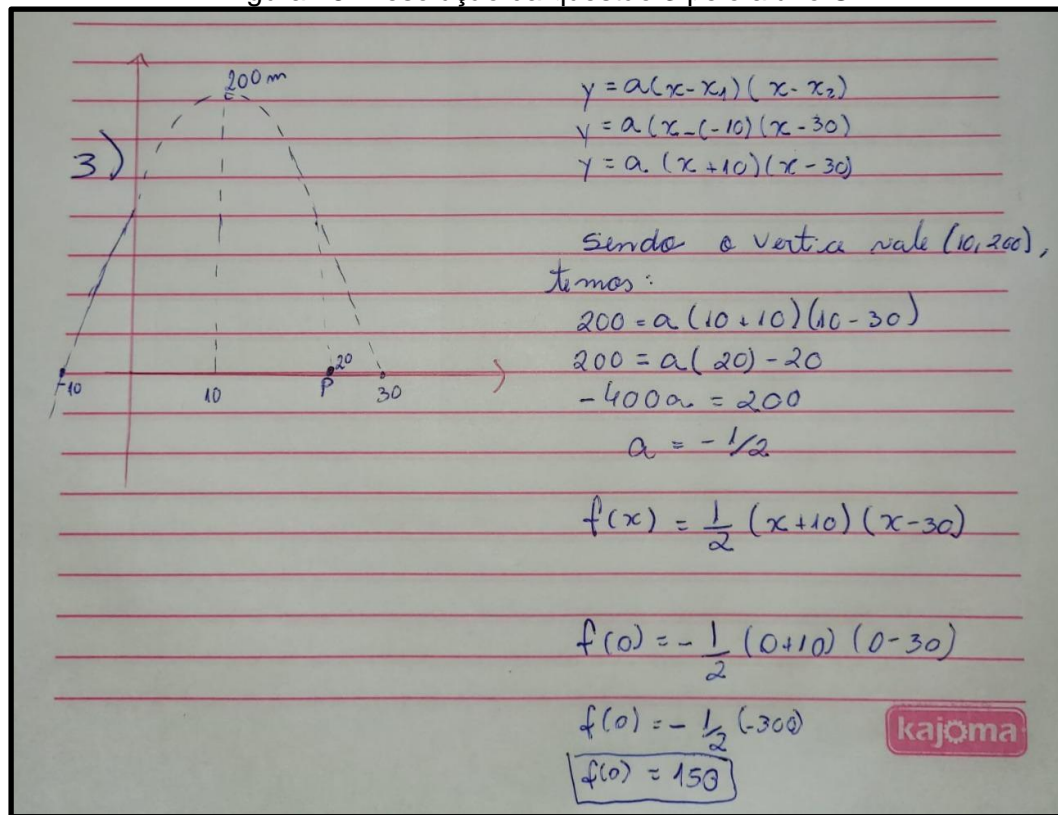 200 m
3)
-10
10
20
P
30
y = a(x-x₁)(x-x₂)
y = a(x-(-10)(x-30)
y = a.(x+10)(x-30)
sendo o vertice vale (10,200),
temos:
200 = a(10+10)(10-30)
200 = a(20)-20
-400a = 200
a = -1/2
f(x) = 1/2 (x+10)(x-30)
f(0) = -1/2 (0+10)(0-30)
f(0) = -1/2 (-300)
f(0) = 150
kajoma